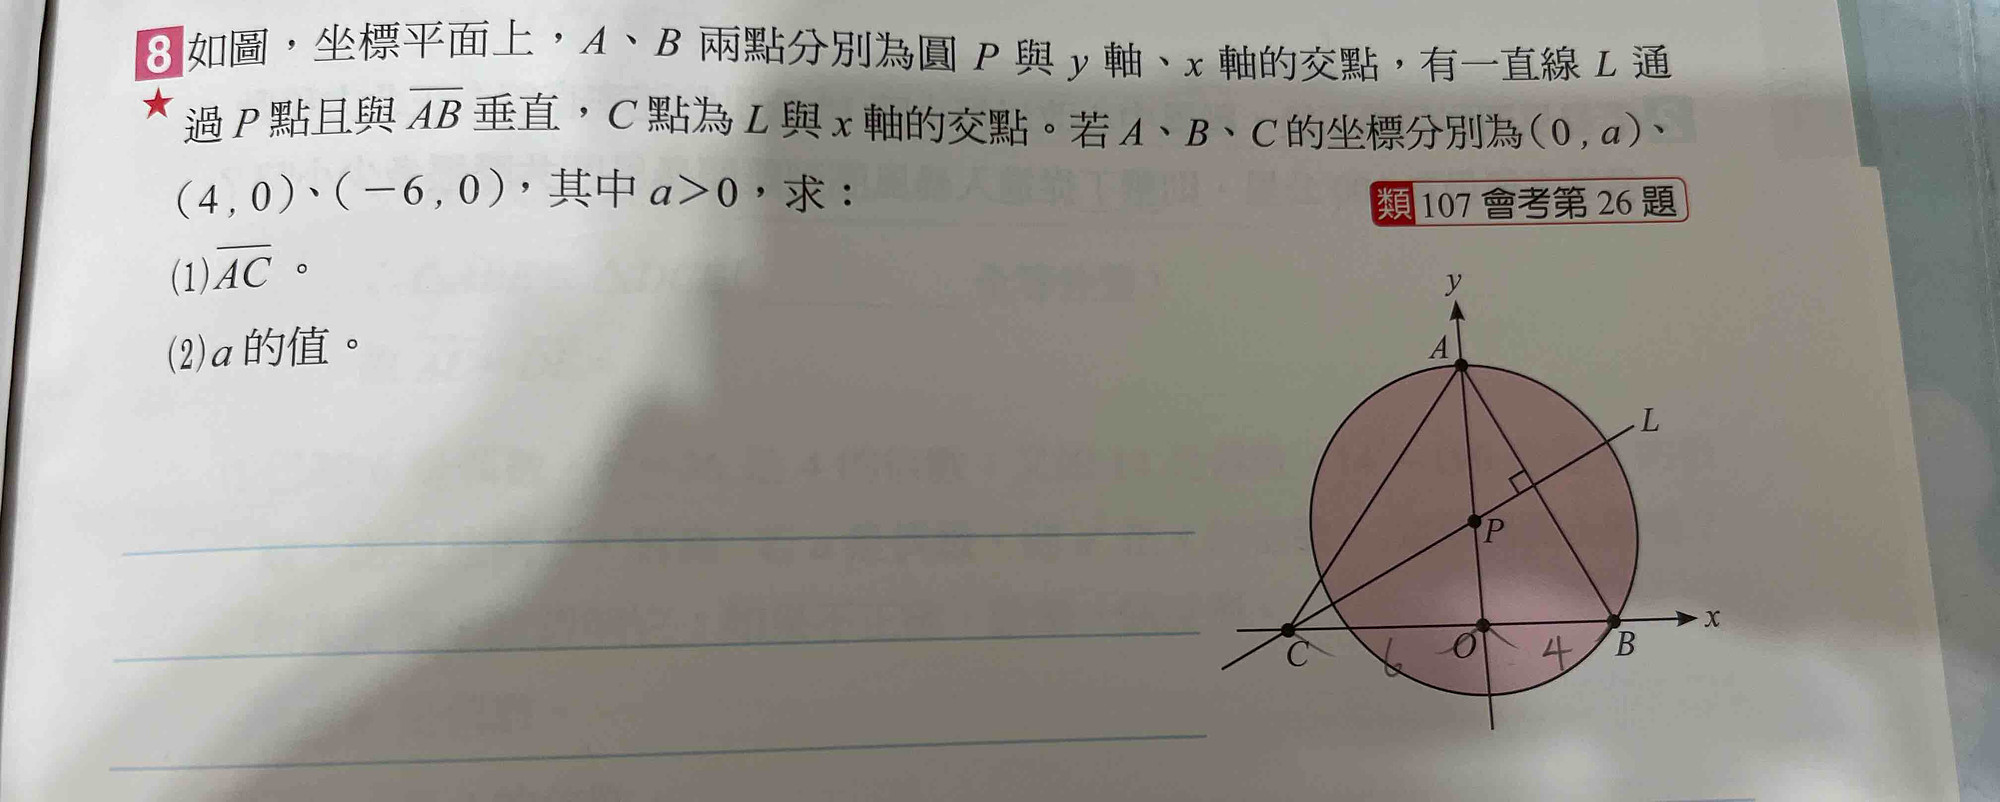 8如圖,坐標平面上,A、B 兩點分別為圓 P 與 y 軸、x 軸的交點,有一直線 L 通
★過 P 點且與 AB 垂直,C 點為 L 與 x 軸的交點。若 A、B、C 的坐標分別為(0, a)、
(4, 0)、(-6, 0),其中 a>0,求:
類 107 會考第 26 題
(1)AC。
(2)a 的值。
y
A
L
P
x
C
6
O
4
B